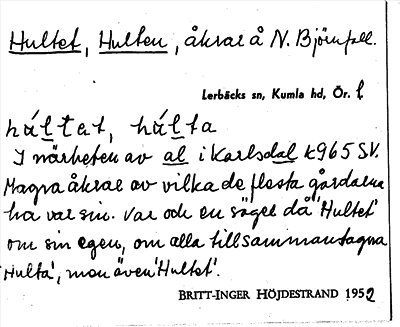 Hultet, Hulten, åkrar å N. Björnfall.
Lerbäcks sn, Kumla hd, Ör. l
hál̲tet, hál̲ta
I närheten av al i Karlsdal k965 SV.
Magra åkrar av vilka de flesta gårdarna
ha var sin. Var och en säger då 'Hultet'
om sin egen, om alla tillsammantagna
'Hulta', men även 'Hultet'.
BRITT-INGER HÖJDESTRAND 1952